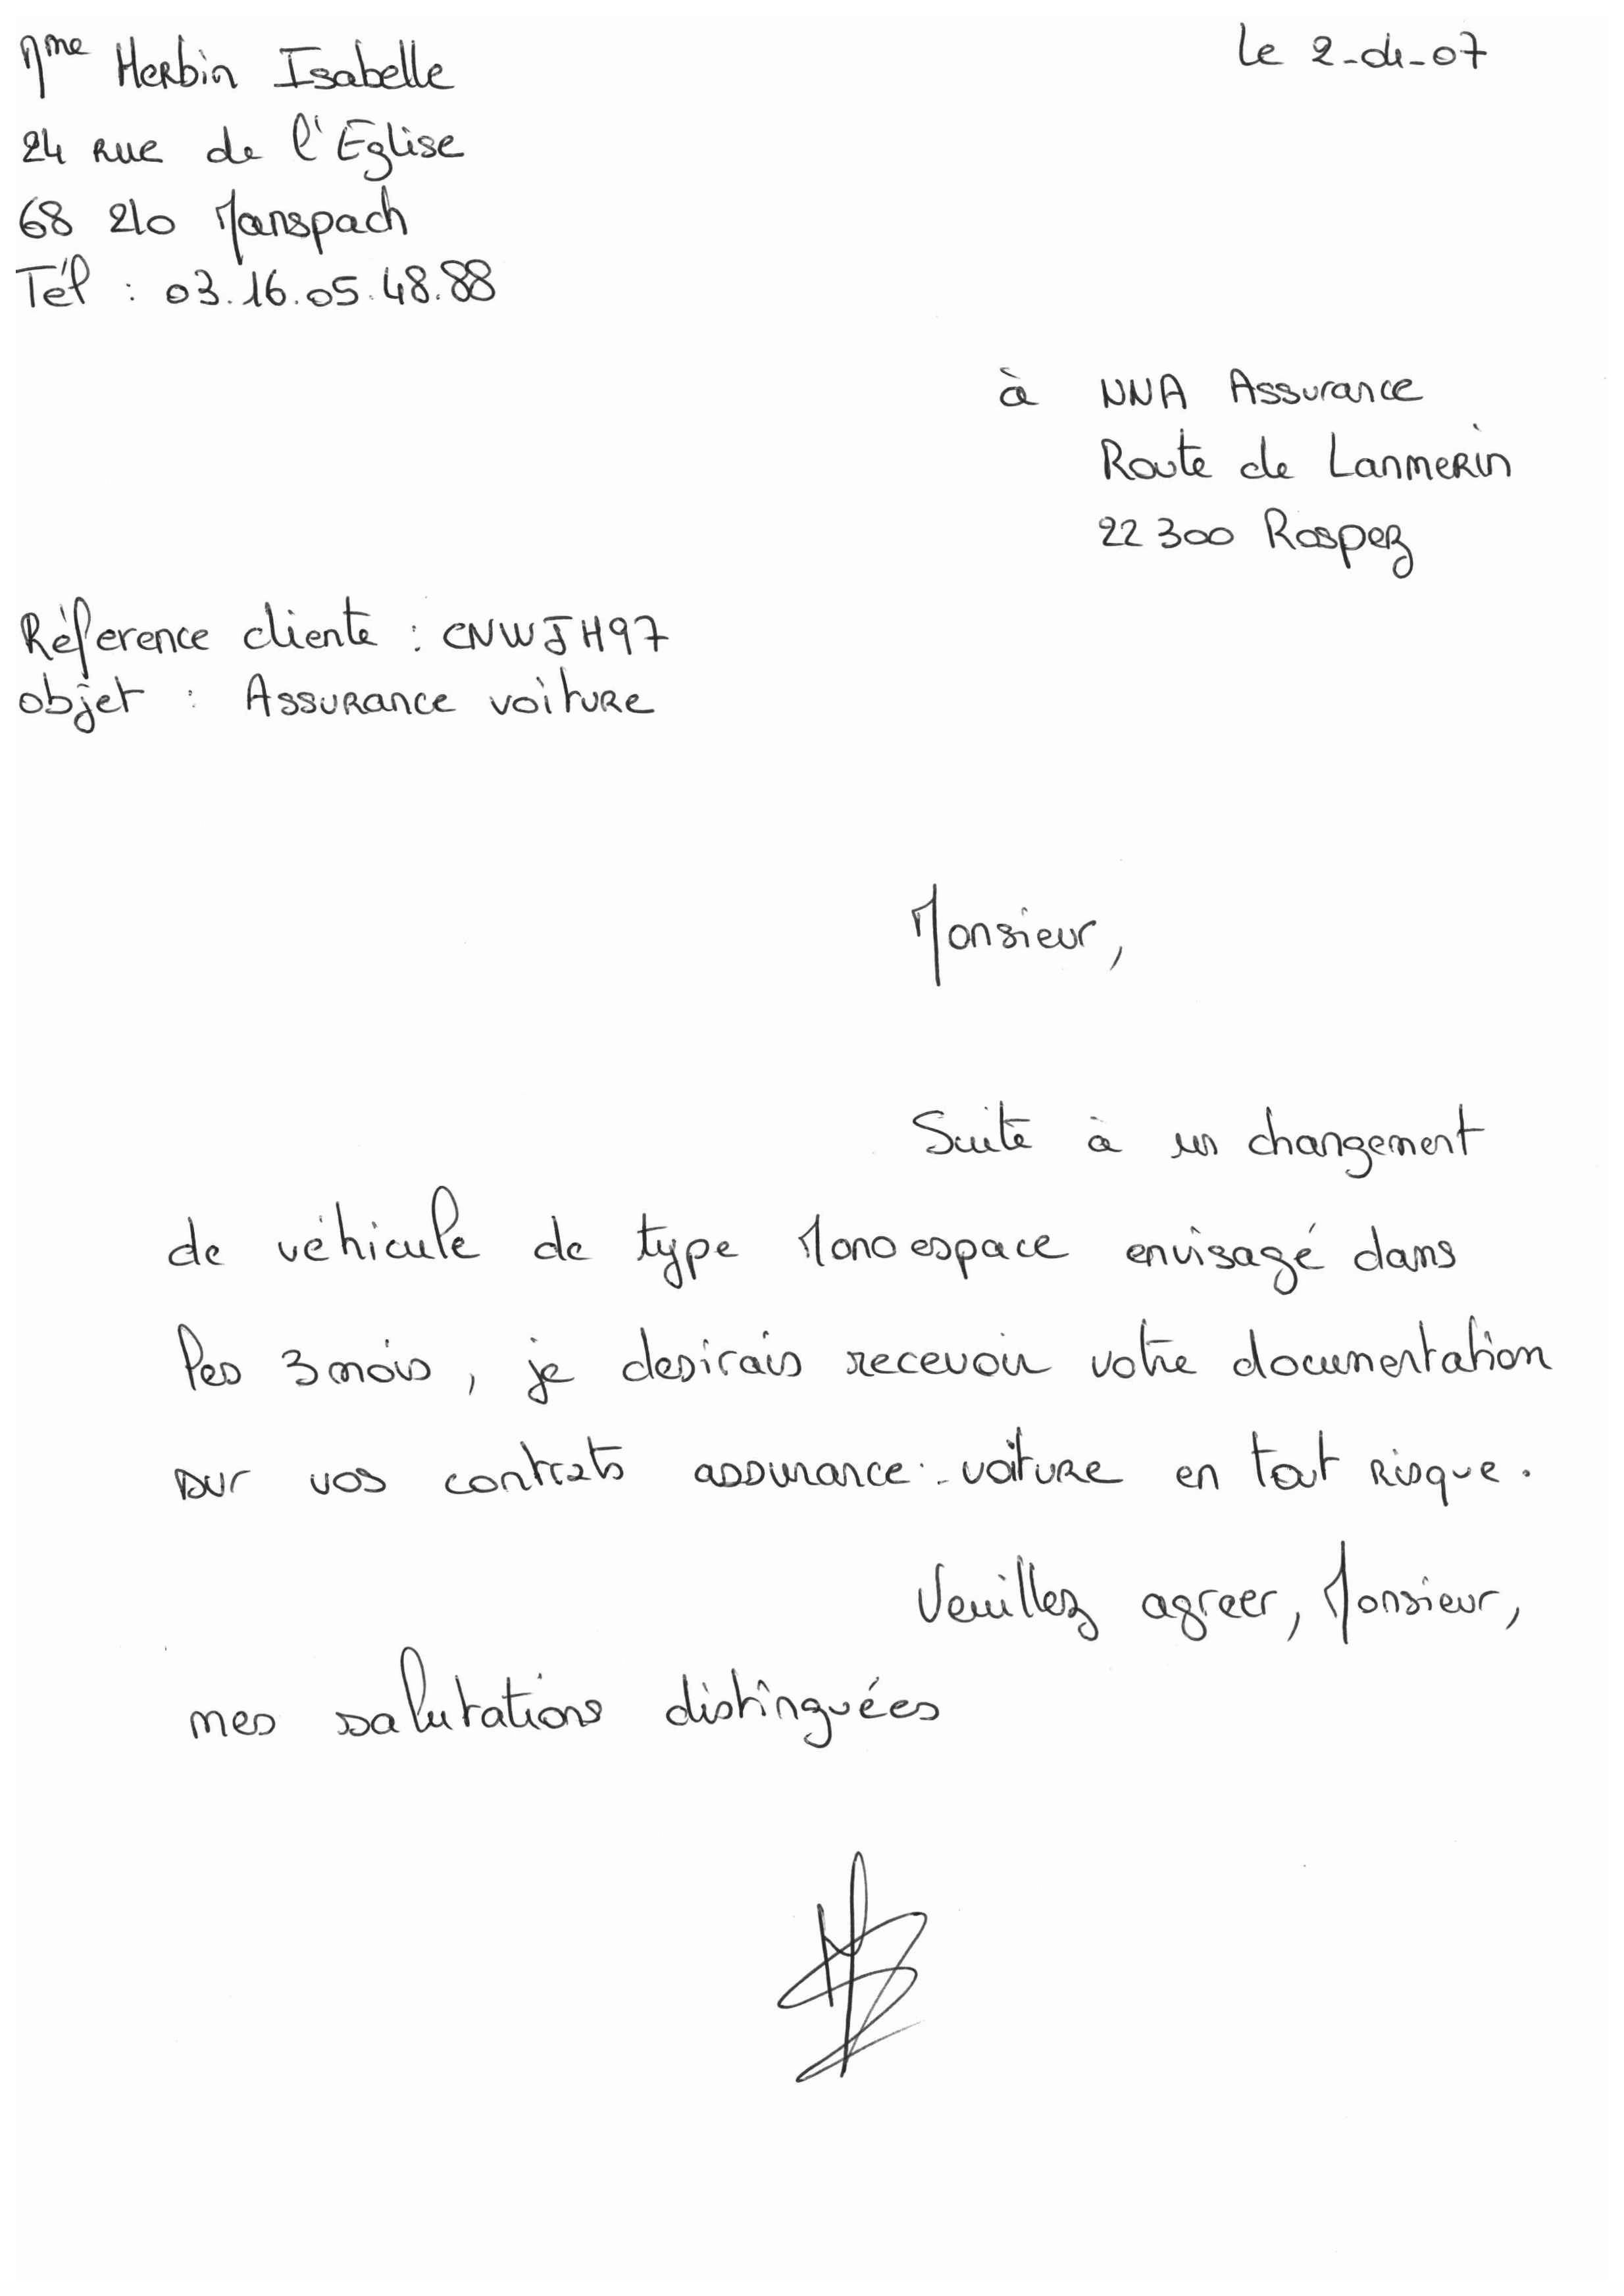 Mme Herbin Isabelle
le 2-04-07
24 rue de l'Eglise
68 210 Manspach
Tél : 03.16.05.48.88
à NNA Assurance
Route de Lanmerin
22 300 Rospez
Réference cliente : CNWJH97
objet : Assurance voiture
Monsieur,
Suite à un changement
de véhicule de type Monoespace envisagé dans
les 3 mois, je desirais recevoir votre documentation
sur vos contrats assurance-voiture en tout risque.
Veuillez agreer, Monsieur,
mes salutations distinguées